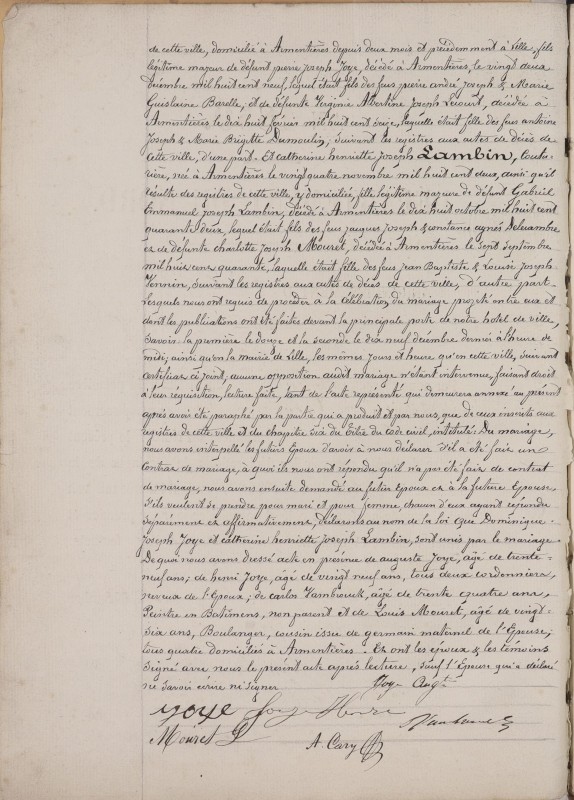 de cette ville, domiciliée à Armentières depuis deux mois et précédemment à Lille, fils
légitime majeur de défunt pierre Joseph Joye, décédé à Armentières, le vingt deux
Décembre mil huit cent neuf, lequel était fils des feus pierre andré Joseph & Marie
Guislaine Barelle; et de défunte Virginie Albertine Joseph Lecourt, décédée à
Armentières le dix huit février mil huit cent treize, laquelle était fille des feus antoine
Joseph & Marie Brigitte Dumoulin; suivant les registres aux actes de décès de
cette ville, d'une part. Et catherine henriette Joseph Lambin, Coutu-
rière, née à Armentières le vingt quatre novembre mil huit cent deux, ainsi qu'il
résulte des registres de cette ville, y domiciliée, fille légitime majeure de défunt Gabriël
Emmanuel Joseph Lambin, décédé à Armentières le dix huit octobre mil huit cent
quarante deux, lequel était fils des feus jacques Joseph & constance agnès Delecambre
et de défunte charlotte Joseph Mouret, décédée à Armentières le sept septembre
mil huit cent quarante, laquelle était fille des feus Jean Baptiste & Louise Joseph
suivant les registres aux actes de décès de cette ville, d'autre part.
Lesquels nous ont requis de procéder à la célébration du mariage projeté entre eux et
dont les publications ont été faites devant la principale porte de notre hôtel de ville,
savoir: la première le douze et la seconde le dix neuf décembre dernier à l'heure de
midi; ainsi qu'en la mairie de Lille, les mêmes jours et heure qu'en cette ville, suivant
certificat ci joint, aucune opposition audit mariage n'étant intervenue, faisant droit
à leur réquisition, lecture faite, tant de l'acte représenté qui demeurera annexé au présent
après avoir été paraphé par la partie qui a produit et par nous, que de ceux inscrits aux
registres de cette ville et du chapitre six du titre du code civil, intitulé: Du mariage,
nous avons interpellé les futurs époux d'avoir à nous déclarer s'il a été fait un
contrat de mariage, à quoi ils nous ont répondu qu'il n'a pas été fait de contrat
de mariage, nous avons ensuite demandé au futur Epoux et à la future Epouse,
s'ils veulent se prendre pour mari et pour femme, chacun d'eux ayant répondu
séparément et affirmativement, déclarons au nom de la loi que Dominique
Joseph Joye et Catherine henriette Joseph Lambin, sont unis par le mariage.
De quoi nous avons dressé acte en présence de auguste Joye, âgé de trente-
neuf ans; de henri Joye, âgé de vingt neuf ans, tous deux cordonniers,
neveux de l'Epoux; de carlos âgé de trente quatre ans,
Peintre en Bâtimens, non parent et de Louis Mouret, âgé de vingt-
six ans, Boulanger, cousin issu de germain maternel de l'Epouse;
tous quatre domiciliés à Armentières. Et ont les époux & les témoins
signé avec nous le présent acte après lecture, sauf l'Epouse qui a déclaré
ne savoir écrire ni signer.
Joye Augte
Joye Joye Henri
Mouret L
A. Cary